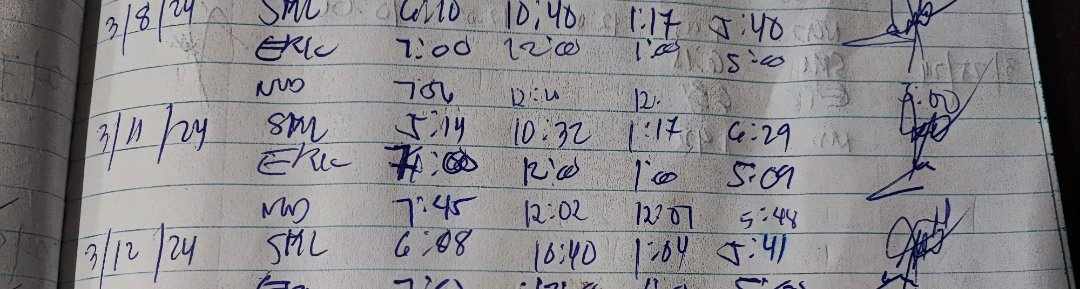 3/8/24 SML 6:10 10:40 1:17 5:40
ERIC 7:00 12:00 1:00 5:00
MD 12. 5:00
3/11/24 SML 5:14 10:32 1:17 6:29
ERIC 12:00 1:00 5:09
MD 7:45 12:02 12:07 5:48
3/12/24 SML 6:08 10:40 1:04 5:41